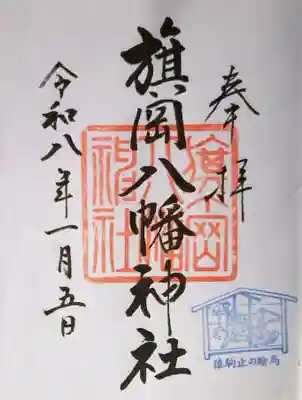 奉拝
旗岡八幡神社
令和八年一月五日
旗岡
八幡
神社
駒止の絵馬